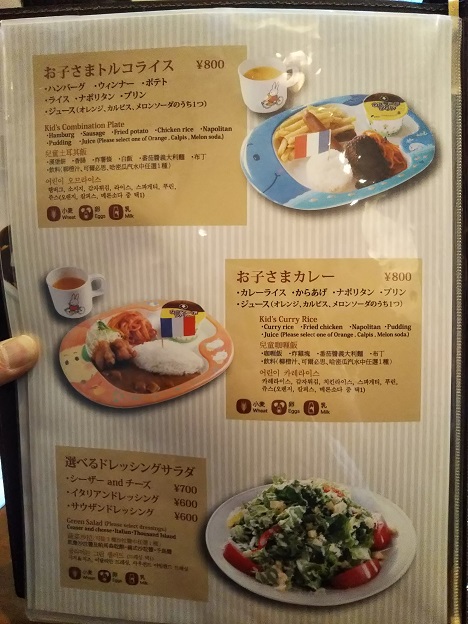 お子さまトルコライス ¥800
・ハンバーグ ・ウィンナー ・ポテト
・ライス ・ナポリタン ・プリン
・ジュース(オレンジ、カルピス、メロンソーダのうち1つ)
Kid's Combination Plate
・Hamburg ・Sausage ・Fried potato ・Chicken rice ・Napolitan
・Pudding ・Juice (Please select one of Orange , Calpis , Melon soda.)
兒童土耳其飯
・漢堡排 ・香腸 ・炸薯條 ・白飯 ・番茄醬義大利麵 ・布丁
・飲料(柳橙汁、可爾必思、哈密瓜汽水中任選1種)
어린이
小麦 Wheat
卵 Eggs
乳 Milk
お子さまカレー ¥800
・カレーライス ・からあげ ・ナポリタン ・プリン
・ジュース(オレンジ、カルピス、メロンソーダのうち1つ)
Kid's Curry Rice
・Curry rice ・Fried chicken ・Napolitan ・Pudding
・Juice (Please select one of Orange , Calpis , Melon soda.)
兒童咖喱飯
・咖喱飯 ・炸雞塊 ・番茄醬義大利麵 ・布丁
・飲料(柳橙汁、可爾必思、哈密瓜汽水中任選1種)
어린이 카레라이스
카레라이스, 감자튀김, 치킨라이스, 스파게티, 푸린,
쥬스(오렌지, 칼피스, 메론소다 중 택1)
小麦 Wheat
卵 Eggs
乳 Milk
選べるドレッシングサラダ
・シーザー and チーズ ¥700
・イタリアンドレッシング ¥600
・サウザンドレッシング ¥600
Green Salad (Please select dressings)
Caesar and cheese・Italian・Thousand Island
小麦 Wheat
卵 Eggs
乳 Milk